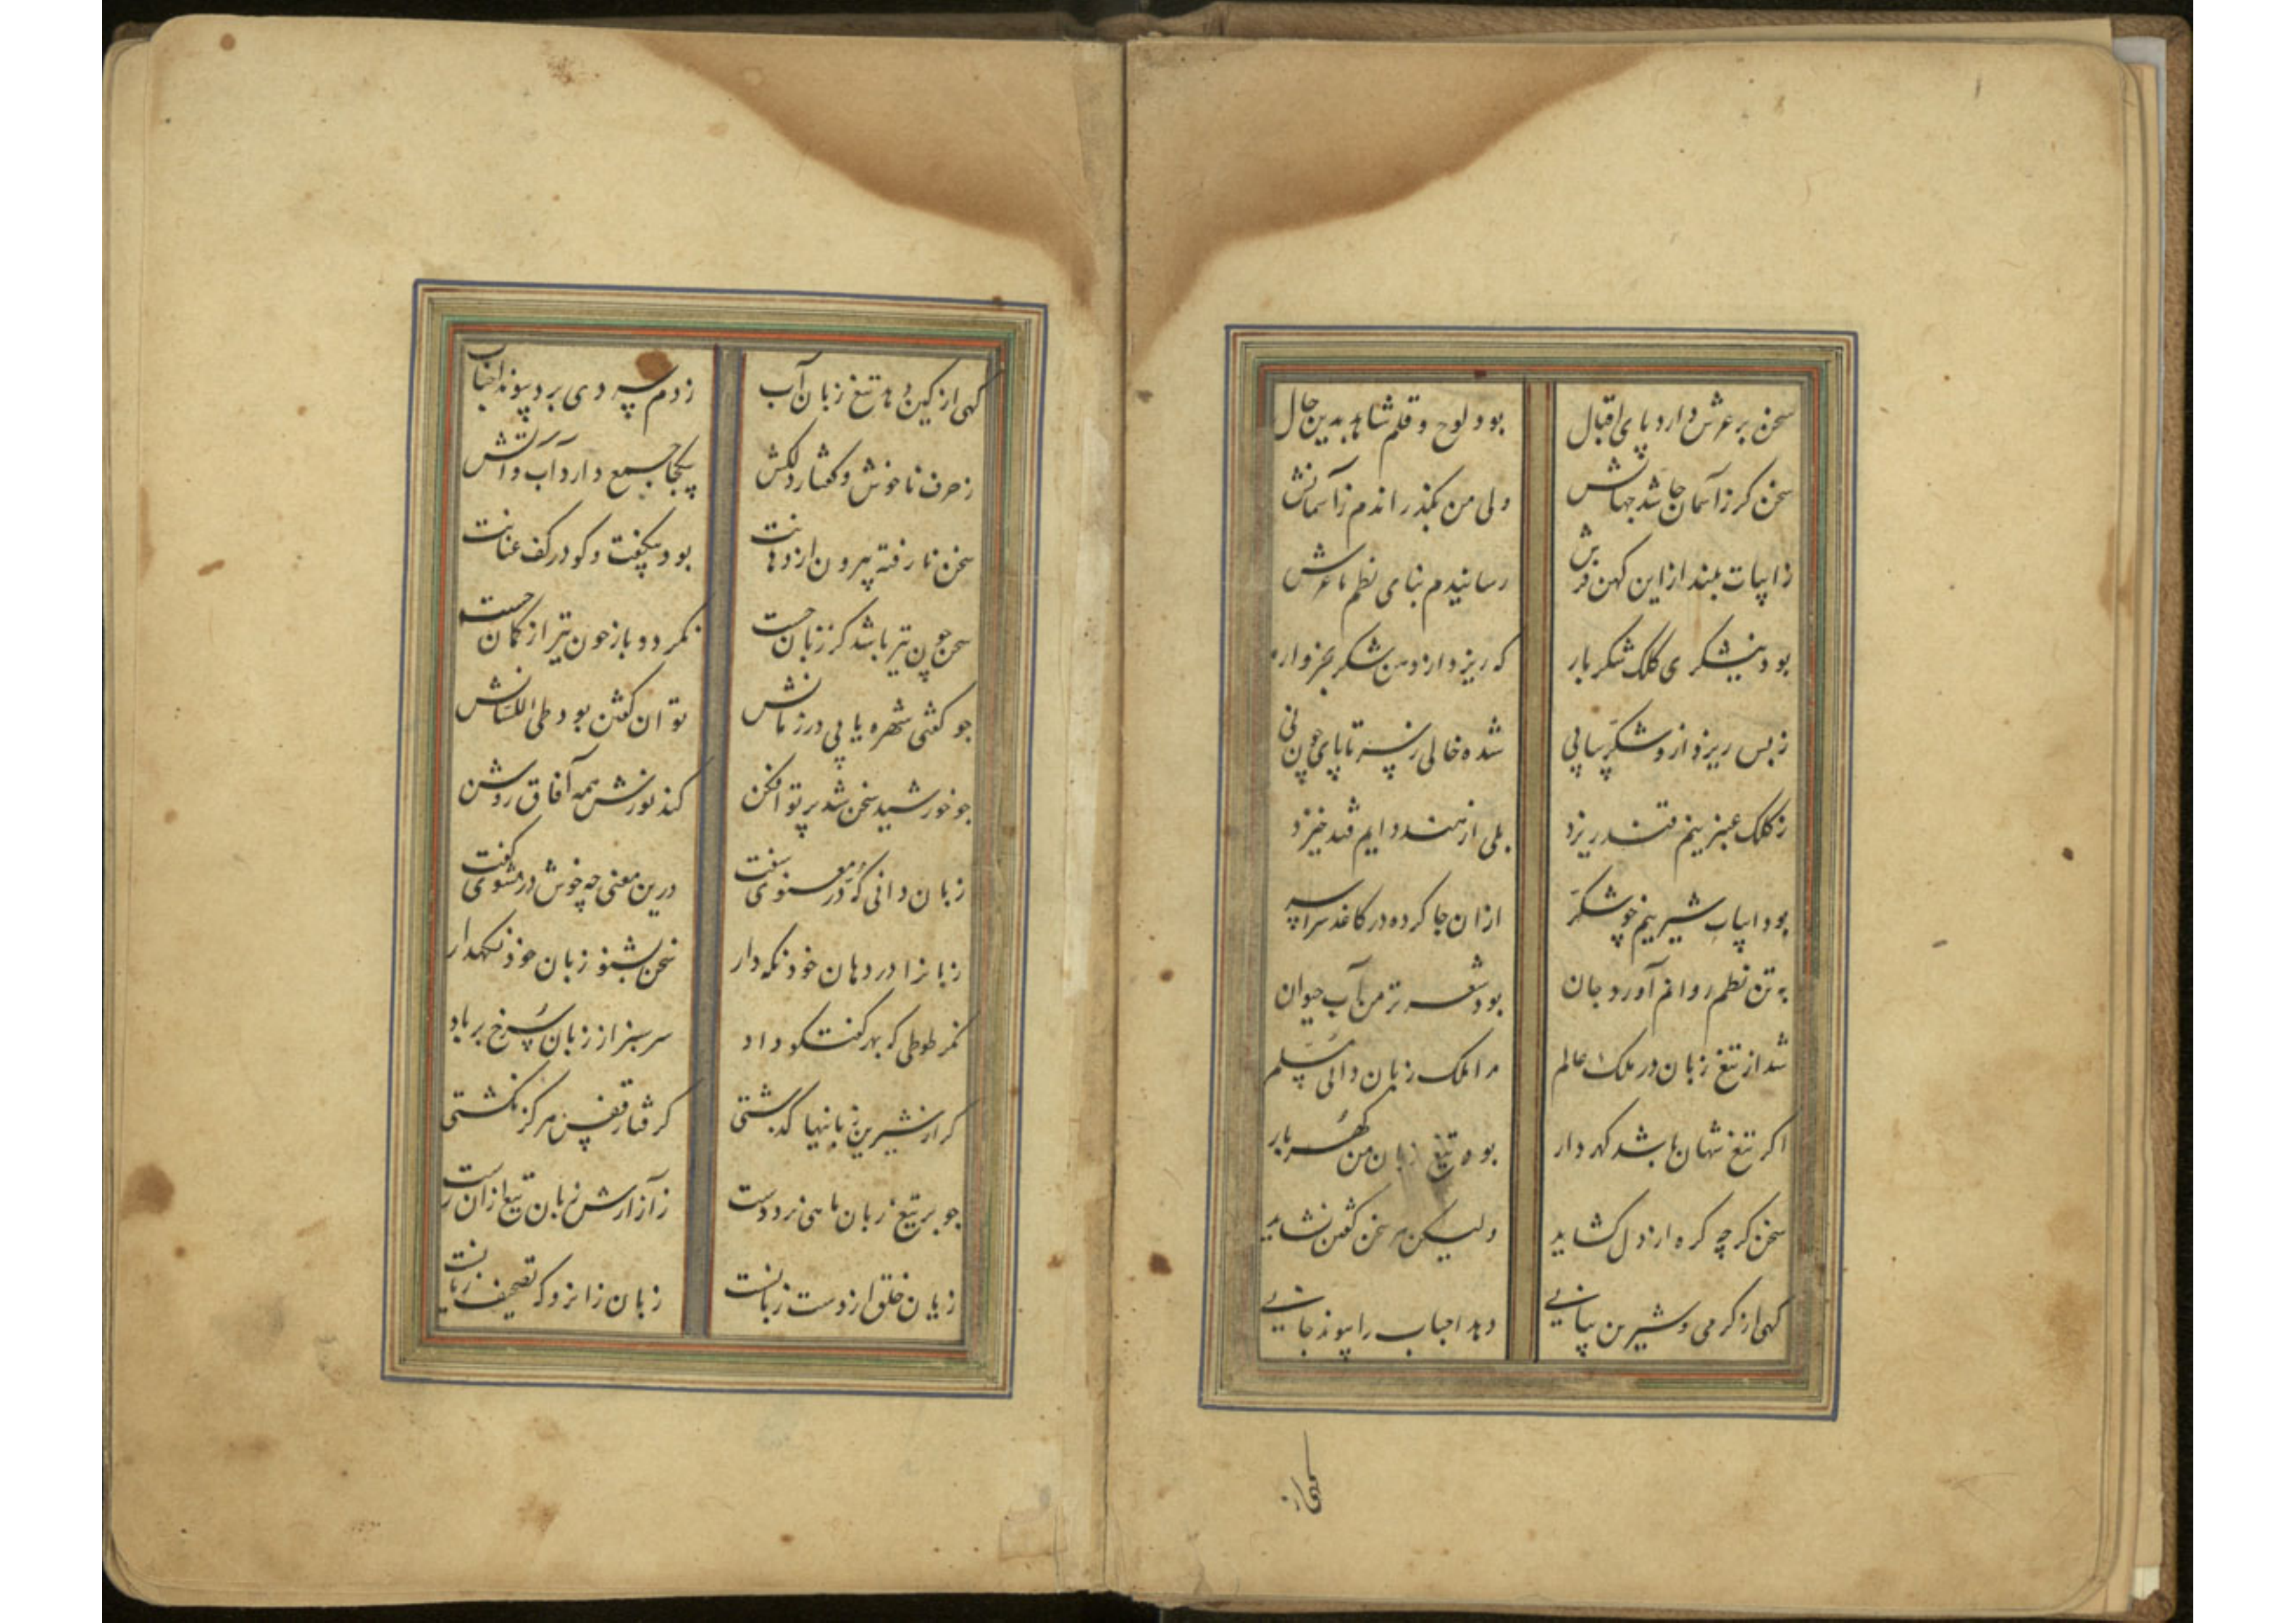 سخن بر عرش دارد پای اقبال بود لوح و قلم شاهد بدین حال
سخن کر زآسمان جا شد جهانش ولی من بکذراندم زآسمانش
زابیات بلند از این کهن فرش رسانیدم بنای نظم تا عرش
بود نیشکری کلک شکربار که ریزد از دهن شکر
زبس ریزد ازو شکر پیاپی شده خالی ز سر تا پای چون نی
ز کلک عنبرینم قند ریزد بلی از هند دایم قند خیزد
بود ابیات شیرینم چو شکر ازان جا کرده در کاغذ سراسر
به تن نظم روانم آورد جان بود شعر تر من آب حیوان
شد از تیغ زبان در ملک عالم مرا ملک زبان دانی مسلم
اکر تیغ شهان باشد کهردار بود تیغ زبان من کهربار
سخن کر چه کره از دل کشاید ولیکن هر سخن کفتن نشاید
کهی از کرمی و شیرین بیانی دهد احباب را پیوند جانی
کهی از
کهی از کین دهد تیغ زبان آب زدم سردی برد پیوند احباب
زحرف ناخوش و کفتار دلکش بیکجا جمع دارد آب و آتش
سخن نارفته بیرون از دهانت بود بیکفت و کو در کف عنانت
سخن چون تیر باشد کز زبان جست نکردد باز چون تیر از کمان جست
جو کفتی شهره یابی در زمانش توان کفتن بود طی اللسانش
جو خورشید سخن شد پرتو افکن کند نورش همه آفاق روشن
زبان دانی که در معنوی سفت درین معنی چه خوش در مثنوی کفت
زبانرا در دهان خود نکه دار سخن بشنو زبان خود نکهدار
مکر طوطی که بهر کفتکو داد سر سبز از زبان سرخ بر باد
کر از شیرین زبانیها کذشتی کرفتار قفس هرکز نکشتی
جو بر تیغ زبان ماهی نزد دست ز آزارش زبان تیغ ازان رست
زیان خلق از دست زبانست زبان زانرو که تصحیف زیانست